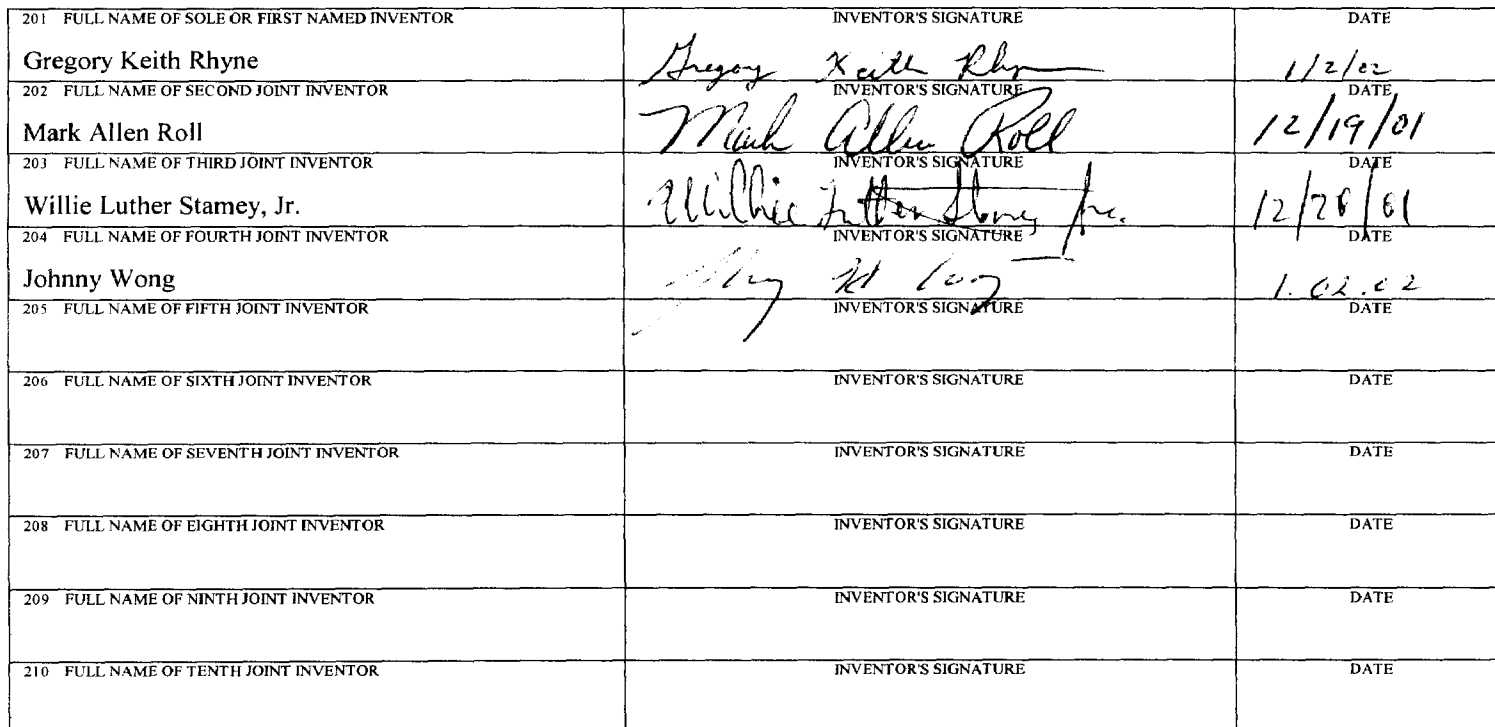 201 FULL NAME OF SOLE OR FIRST NAMED INVENTOR INVENTOR'S SIGNATURE DATE
Gregory Keith Rhyne Gregory Keith Rhyne 1/2/02
202 FULL NAME OF SECOND JOINT INVENTOR INVENTOR'S SIGNATURE DATE
Mark Allen Roll Mark Allen Roll 12/19/01
203 FULL NAME OF THIRD JOINT INVENTOR INVENTOR'S SIGNATURE DATE
Willie Luther Stamey, Jr. Willie Luther Stamey Jr. 12/28/01
204 FULL NAME OF FOURTH JOINT INVENTOR INVENTOR'S SIGNATURE DATE
Johnny Wong 1.02.02
205 FULL NAME OF FIFTH JOINT INVENTOR INVENTOR'S SIGNATURE DATE
206 FULL NAME OF SIXTH JOINT INVENTOR INVENTOR'S SIGNATURE DATE
207 FULL NAME OF SEVENTH JOINT INVENTOR INVENTOR'S SIGNATURE DATE
208 FULL NAME OF EIGHTH JOINT INVENTOR INVENTOR'S SIGNATURE DATE
209 FULL NAME OF NINTH JOINT INVENTOR INVENTOR'S SIGNATURE DATE
210 FULL NAME OF TENTH JOINT INVENTOR INVENTOR'S SIGNATURE DATE